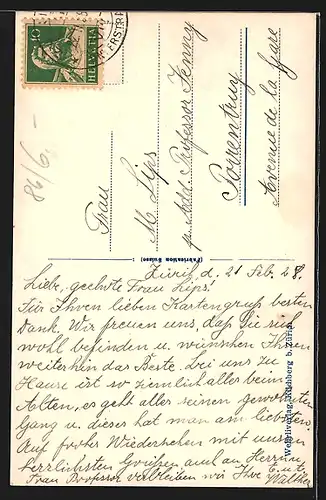 10
HELVETIA
86/6.-
Frau
M. Lips
p. Add. Professor Jenny
Porrentruy
Avenue de la Gare
(Fabrication Suisse)
Zürich, d. 21 Feb. 28.
Liebe, geehrte Frau Lips!
Für Ihren lieben Kartengruß besten
Dank. Wir freuen uns, daß Sie sich
wohl befinden u. wünschen Ihnen
weiterhin das Beste. Bei uns zu
Hause ist so ziemlich alles beim
Alten, es geht alles seinen gewohnten
Gang u. dieses hat man am liebsten.
Auf frohes Wiedersehen mit unsern
herrlichsten Grüßen auch an Herrn u.
Frau Professor verbleiben wir Ihre E. u. L.
Walther
Wehrliverlag, Kilchberg b. Zürich